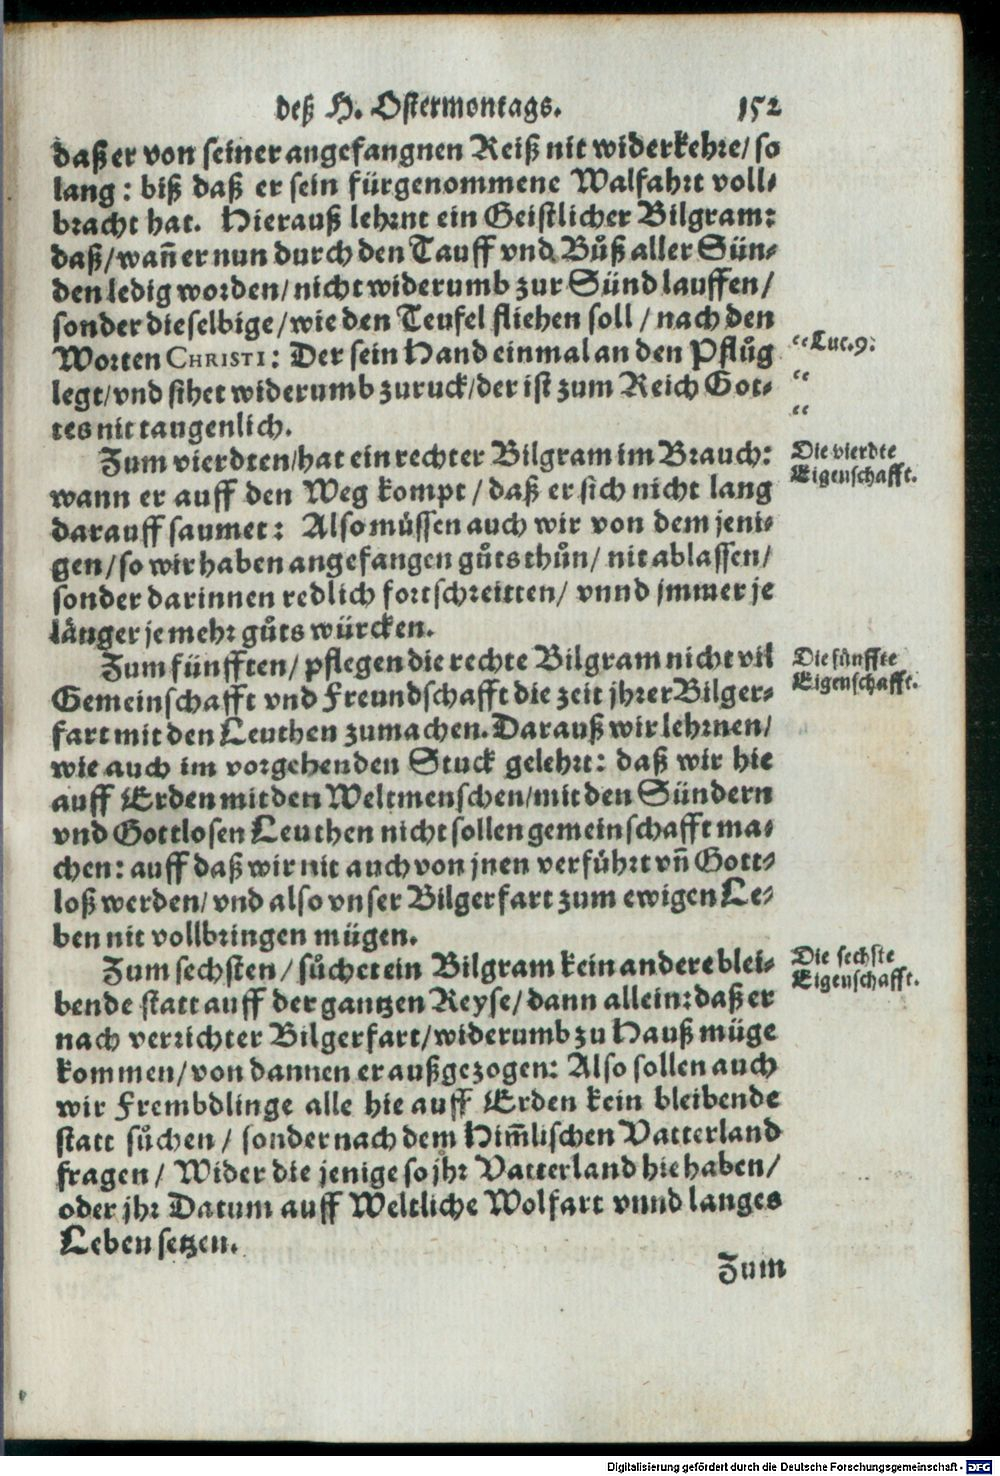 deß H. Ostermontags. 152
daß er von seiner angefangnen Reiß nit widerkehre/ so
lang: biß daß er sein fürgenommene Walfahrt voll-
bracht hat. Hierauß lehrnt ein Geistlicher Bilgram:
daß/ wañ er nun durch den Tauff vnd Bůß aller Sün-
den ledig worden/ nicht widerumb zur Sünd lauffen/
sonder dieselbige/ wie den Teufel fliehen soll / nach den
Worten CHRISTI: Der sein Hand einmal an den Pflůg
“Luc.9:
legt/ vnd sihet widerumb zuruck/ der ist zum Reich Got-
“
tes nit taugenlich.
“
Zum vierdten/ hat ein rechter Bilgram im Brauch:
Die vierdte
Eigenschafft.
wann er auff den Weg kompt / daß er sich nicht lang
darauff saumet: Also müssen auch wir von dem jeni-
gen/ so wir haben angefangen gůts thůn/ nit ablassen/
sonder darinnen redlich fortschreitten/ vnnd jmmer je
länger je mehr gůts würcken.
Zum fünfften/ pflegen die rechte Bilgram nicht vil
Die fünffte
Eigenschafft.
Gemeinschafft vnd Freundschafft die zeit jhrer Bilger-
fart mit den Leuthen zumachen. Darauß wir lehrnen/
wie auch im vorgehenden Stuck gelehrt: daß wir hie
auff Erden mit den Weltmenschen/ mit den Sündern
vnd Gottlosen Leuthen nicht sollen gemeinschafft ma-
chen: auff daß wir nit auch von jnen verführt vñ Gott-
loß werden/ vnd also vnser Bilgerfart zum ewigen Le-
ben nit vollbringen mügen.
Zum sechsten/ sůchet ein Bilgram kein andere blei-
Die sechste
Eigenschafft.
bende statt auff der gantzen Reyse/ dann allein: daß er
nach verrichter Bilgerfart/ widerumb zu Hauß müge
kommen/ von dannen er außgezogen: Also sollen auch
wir Frembdlinge alle hie auff Erden kein bleibende
statt sůchen / sonder nach dem Him̃lischen Vatterland
fragen/ Wider die jenige so jhr Vatterland hie haben/
oder jhr Datum auff Weltliche Wolfart vnnd langes
Leben setzen.
Zum
Digitalisierung gefördert durch die Deutsche Forschungsgemeinschaft - DFG